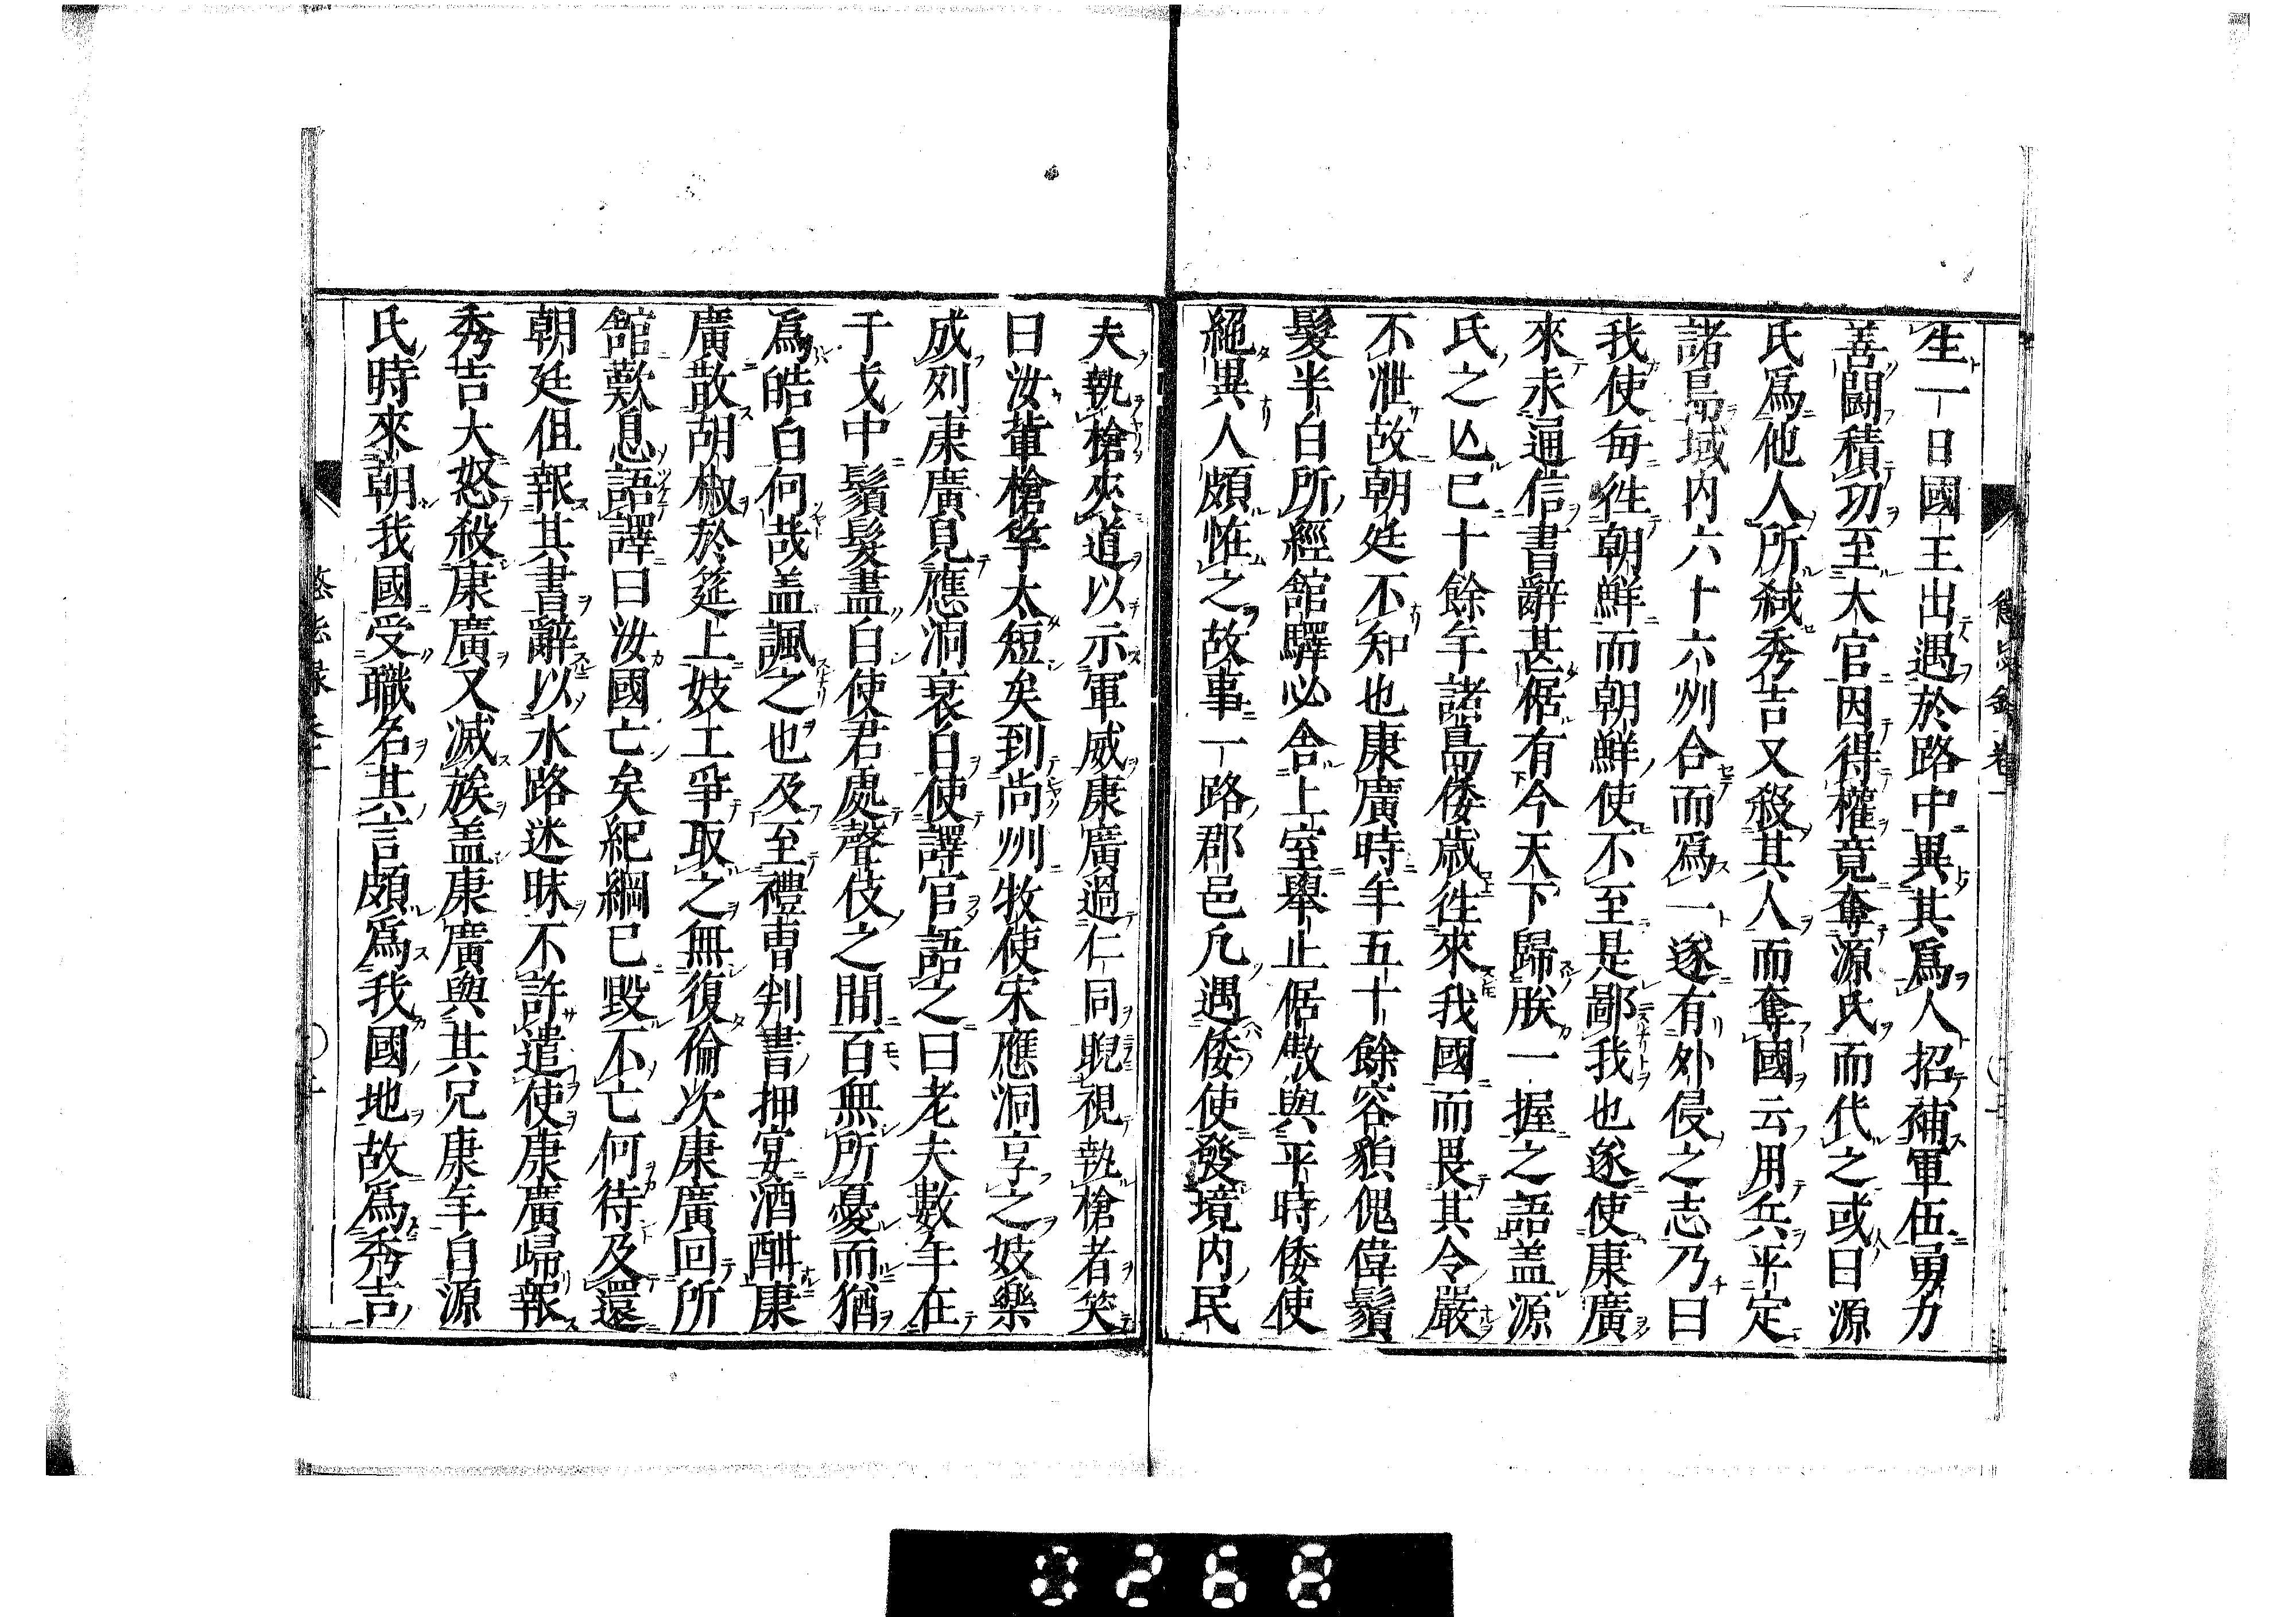 生一日國王出遇於路中異其爲人招補軍伍勇力
善鬪積功至大官因得權竟奪源氏而代之或曰源
氏爲他人所弑秀吉又殺其人而奪國云用兵平定
諸島域内六十六州合而爲一遂有外侵之志乃曰
我使每徃朝鮮而朝鮮使不至是鄙我也遂使康廣
來求通信書辭甚倨有今天下歸朕一握之語盖源
氏之亾已十餘年諸島倭歳徃來我國而畏其令嚴
不泄故朝廷不知也康廣時年五十餘容貌傀偉鬚
髮半白所經館驛必舎上室舉止倨傲與平時倭使
絕異人頗恠之故事一路郡邑凡遇倭使發境内民
夫執槍夾道以示軍威康廣過仁同睨視執槍者笑
曰汝輩槍竿太短矣到尚州牧使宋應洞享之妓樂
成列康廣見應洞衰白使譯官語之曰老夫數年在
干戈中鬚髮盡白使君處聲伎之間百無所憂而猶
爲皓白何哉盖諷之也及至禮曹判書押宴酒酣康
廣散胡椒於筵上妓工爭取之無復倫次康廣回所
館歎息語譯曰汝國亡矣紀綱已毀不亡何待及還
朝廷但報其書辭以水路迷昧不許遣使康廣歸報
秀吉大怒殺康廣又滅族盖康廣與其兄康年自源
氏時來朝我國受職名其言頗爲我國地故爲秀吉
0268